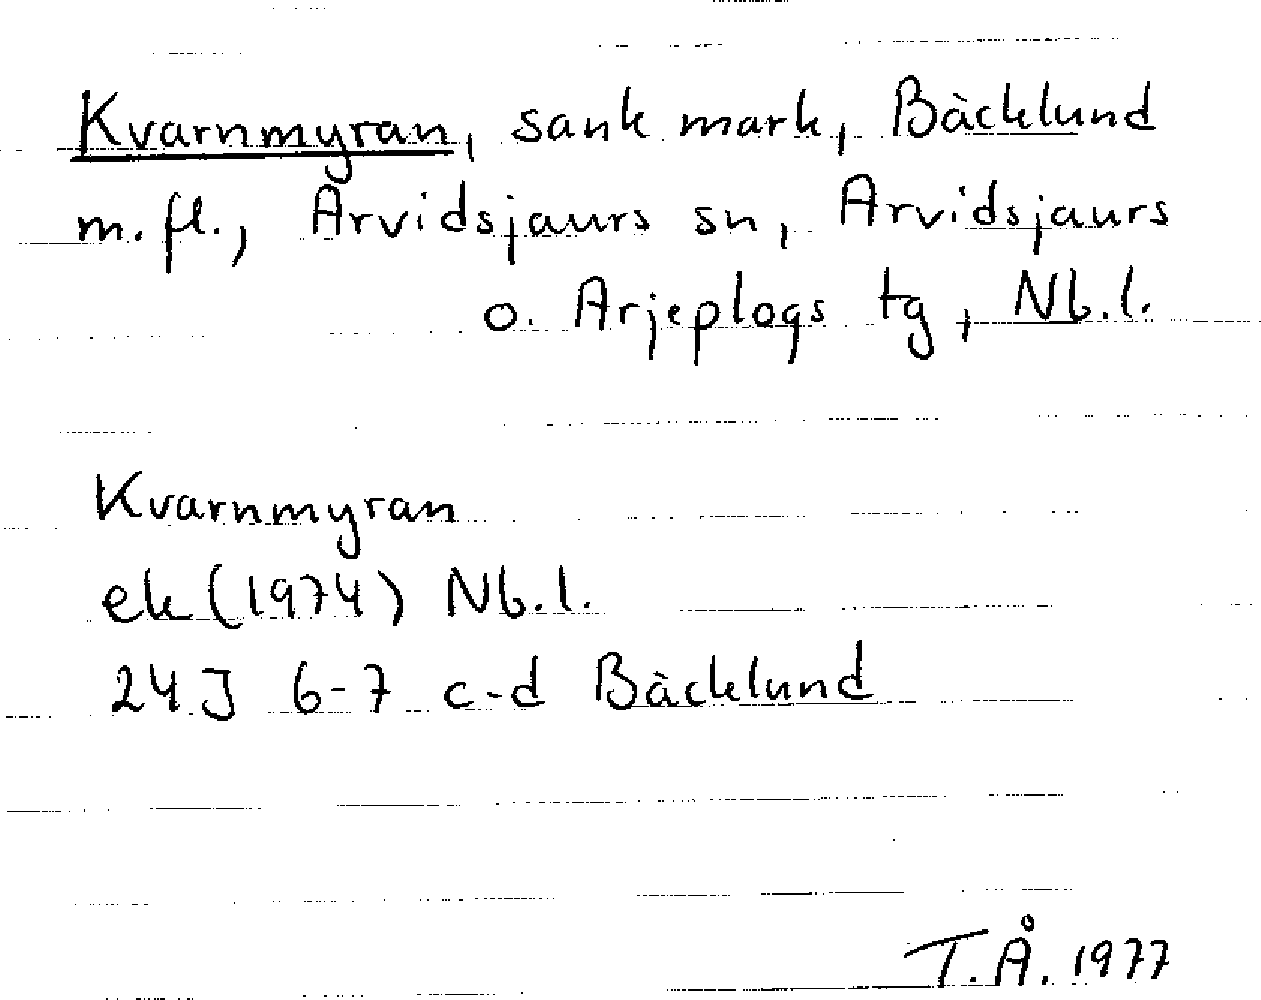 Kvarnmyran, sank mark, Bäcklund
m.fl., Arvidsjaurs sn, Arvidsjaurs
o. Arjeplogs tg, Nb.l.
Kvarnmyran
ek (1974) Nb.l.
24J 6-7 c-d Bäcklund
T.Å. 1977